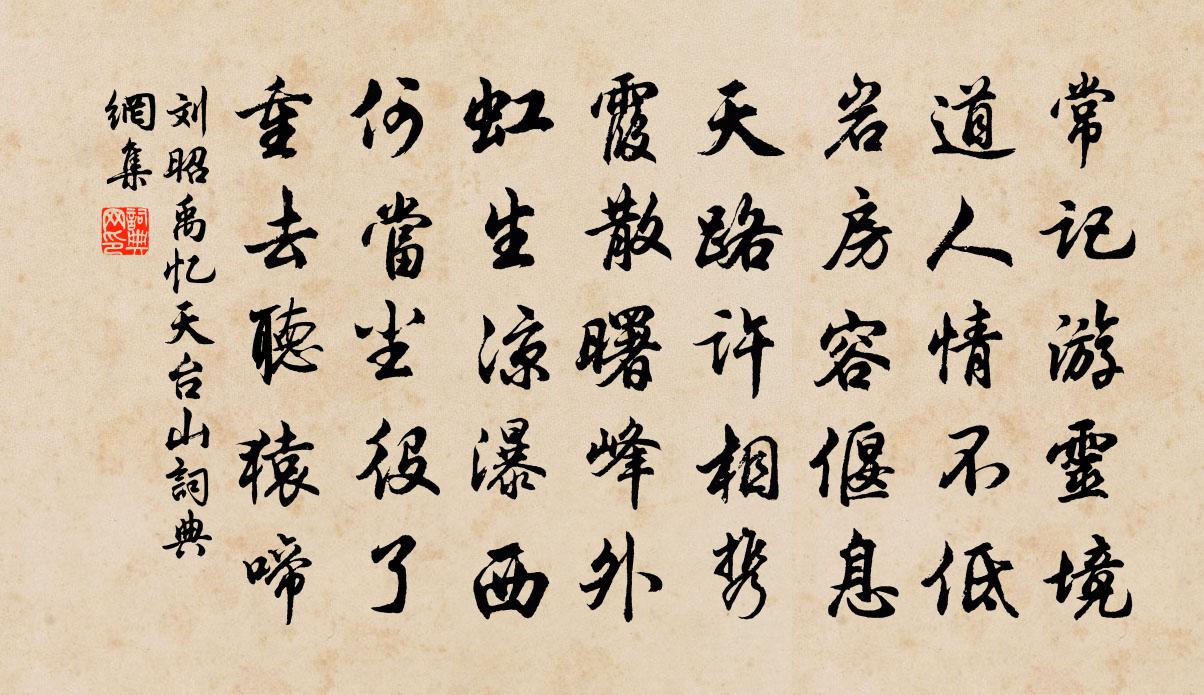 常记游靈境
道人情不低
岩房容偃息
天路许相携
霞散曙峰外
虹生涼瀑西
何當尘役了
重去聽猿啼
刘昭禹忆天台山詞典
網集
詞典網印